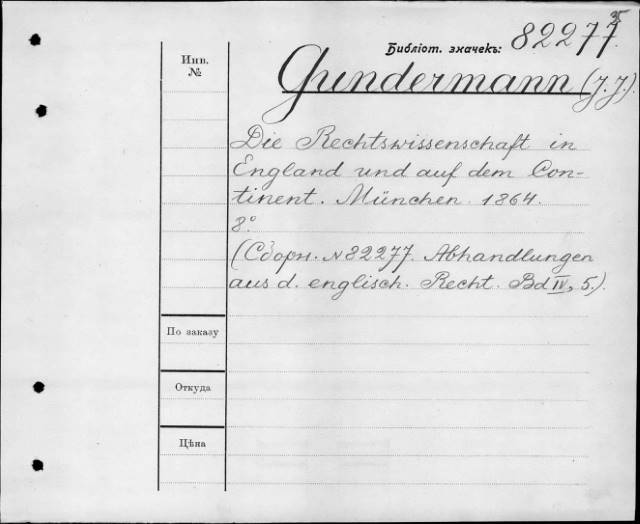 Библіот. значекъ: 82277 25
Инв. №
Gundermann (J. J.).
Die Rechtswissenschaft in
England und auf dem Con-
tinent. München. 1864.
8°
(Сборн. № 82277. Abhandlungen
aus d. englisch. Recht. Bd IV, 5.).
По заказу
Откуда
Цѣна